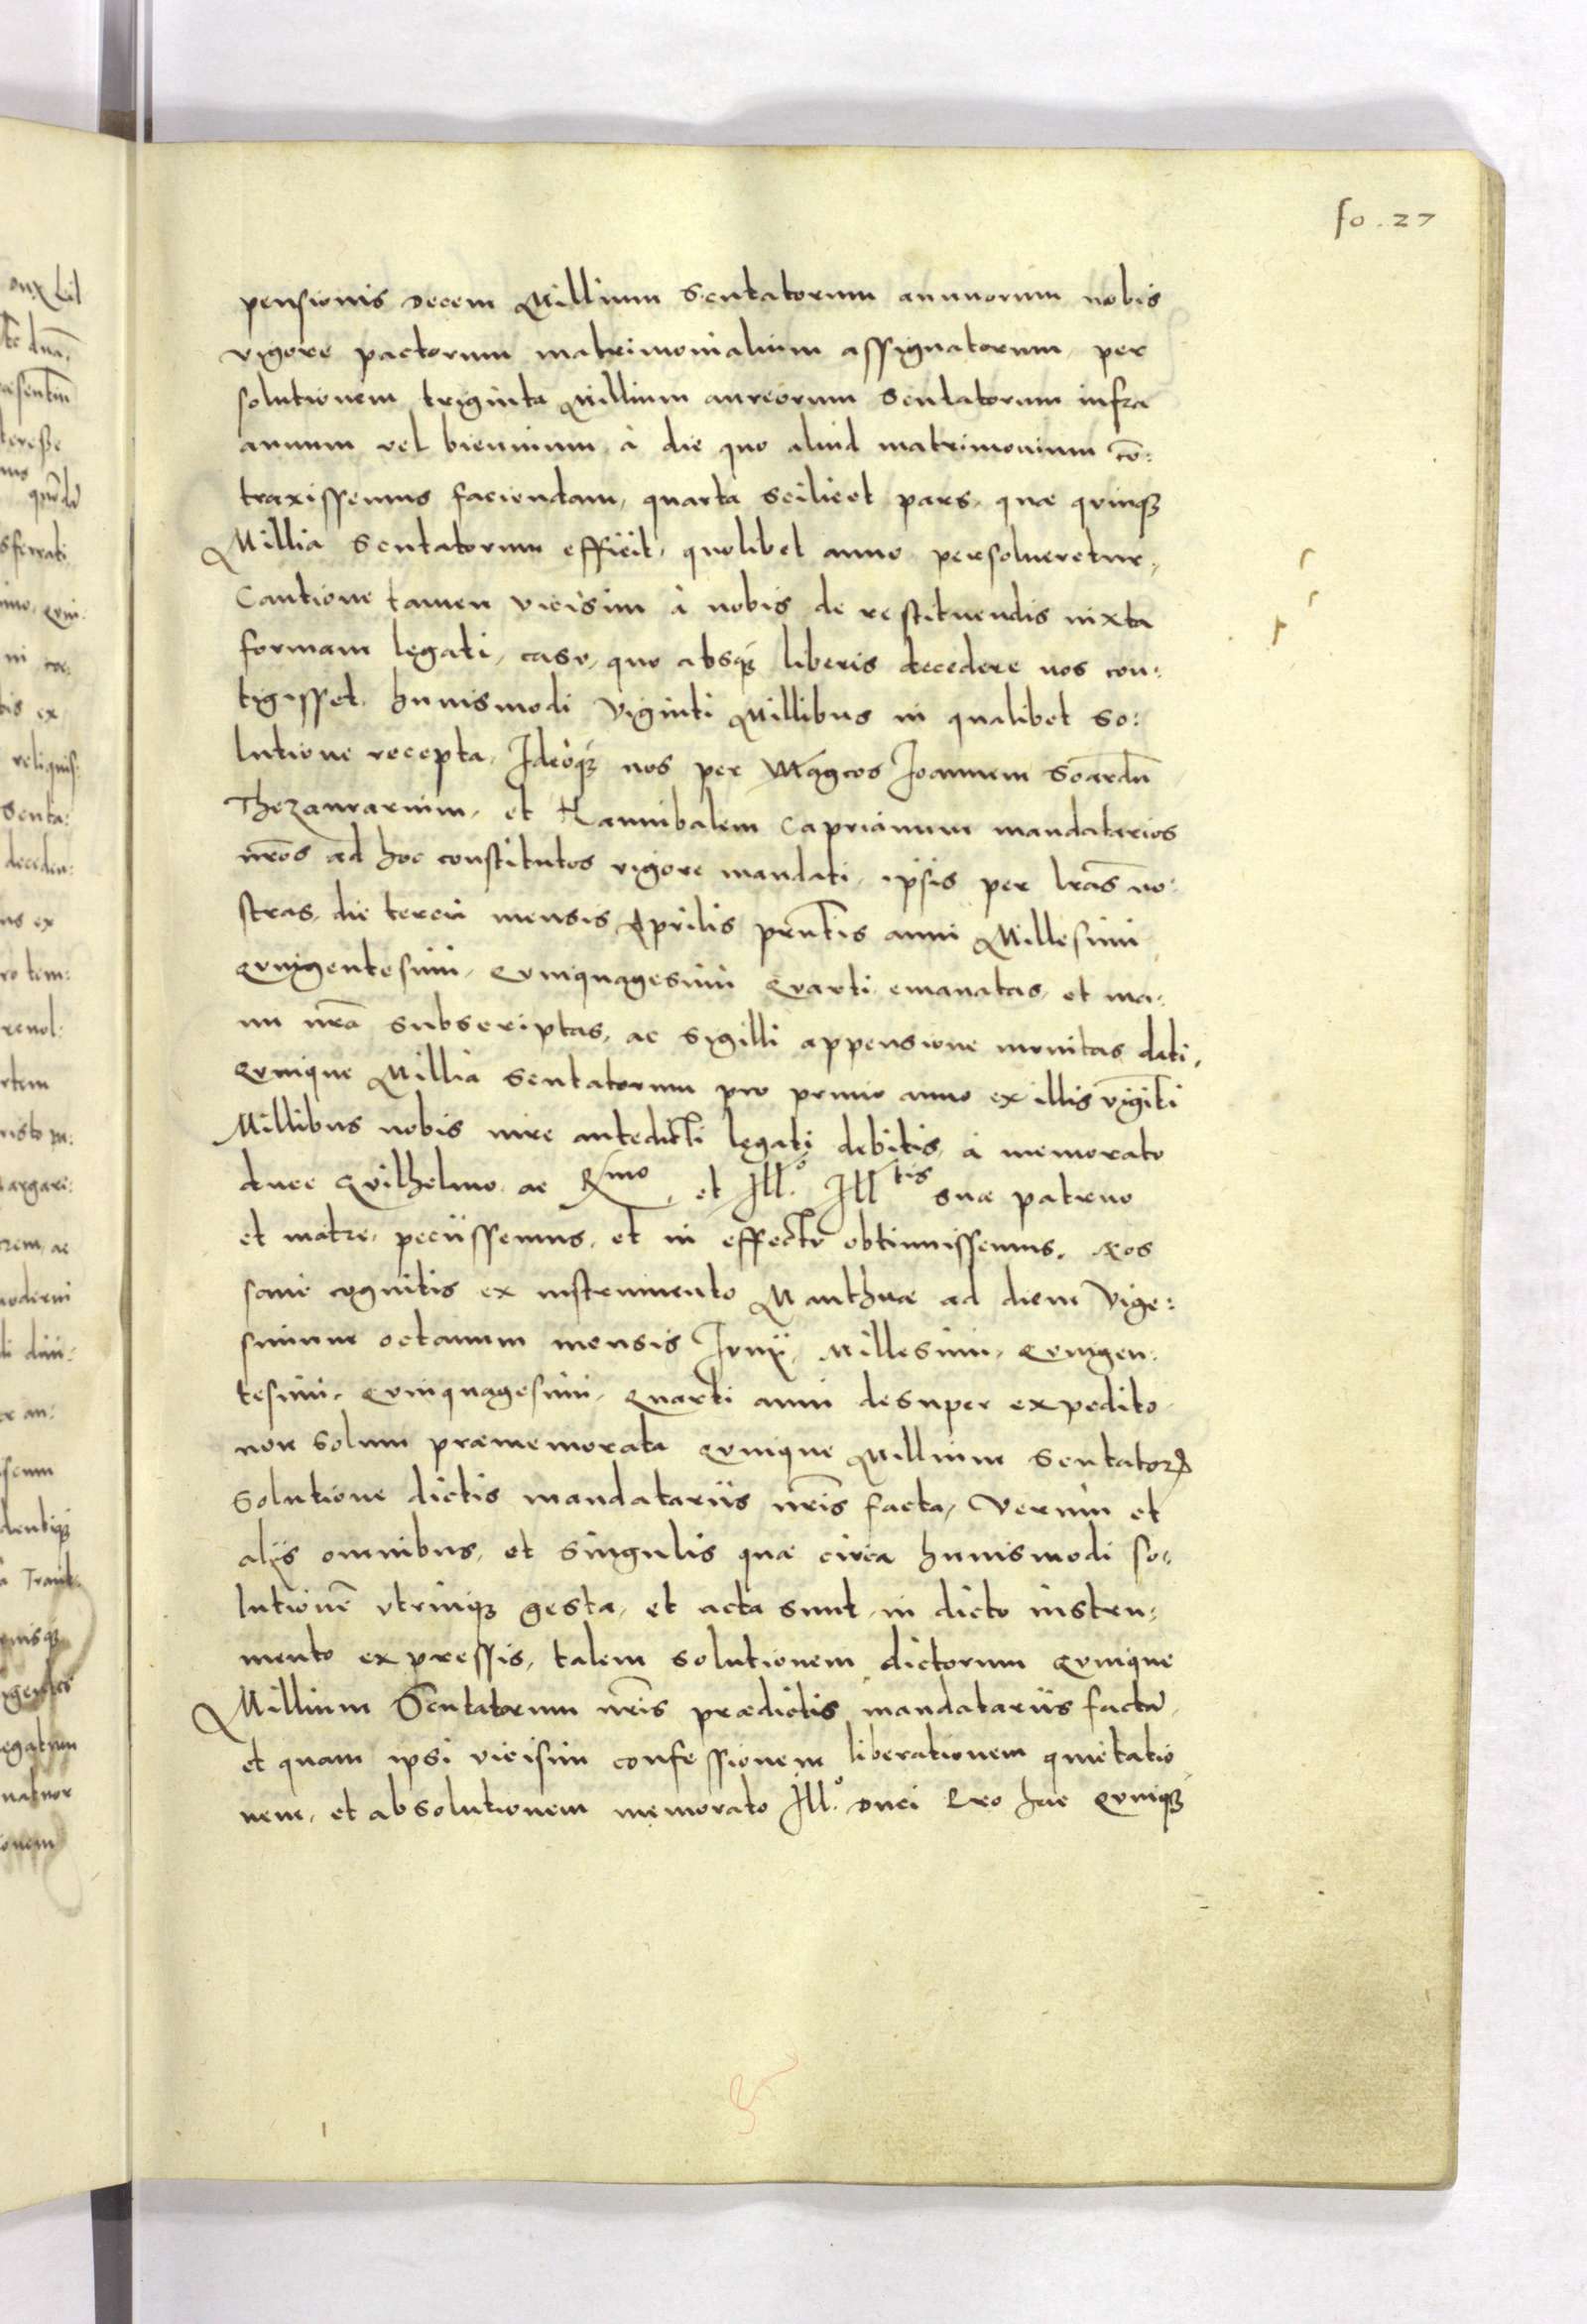 fo. 27
pensionis decem Millium Scutatorum annuorum nobis
vigore pactorum matrimonialium assignatorum, per
solutionem triginta Millium aureorum Scutatorum infra
annum vel biennium à die quo aliud matrimonium cō:
traxissemus faciendam, quarta scilicet pars, quae quinq3
Millia Scutatorum efficit, quolibet anno persolueretur,
Cautione tamen vicisim à nobis de restituendis iuxta
formam legati, casu, quo absq3 liberis decedere nos con:
tigisset, huiusmodi Viginti Millibus in qualibet so:
lutione recepta, Ideoq3 nos per Magcos Joannem Soardū
Thezaurarium, et Hannibalem Caprianum mandatarios
nr̄os ad hoc constitutos vigore mandati, ipsis per lr̄as no:
stras, die tercia mensis Aprilis pr̄ntis anni Millesimi
Quingentesimi, Quinquagesimi Quarti emanatas, et ma:
nu nr̄a subscriptas, ac sigilli appensione munitas dati,
Quinque Millia Scutatorum pro primo anno ex illis vigīti
Millibus nobis iure antedicti legati debitis, à memorato
duce Guilhelmo ac Rmo, et Ill.o Ill tis suae patruo
et matre, peciissemus, et in effectu obtinuissemus. Nos
sane cognitis ex instrumento Manthuae ad diem Vige:
simum octauum mensis Junij, Millesimi, Quingen:
tesimi, Quinquagesimi, Quarti anni desuper expedito
non solum praememorata Quinque Millium Scutatorꝝ
Solutione dictis mandatariis nr̄is facta, Verum et
alijs omnibus, et Singulis quae circa huiusmodi so:
lutionē vtrinq3 gesta, et acta sunt, in dicto instru:
mento expressis, talem solutionem dictorum Quinque
Millium Scutatorum nr̄is praedictis mandatariis factā,
et quam ipsi vicisim confessionem liberationem quietatio
nem, et absolutionem memorato Ill.o Duci Pro hac Quinq3